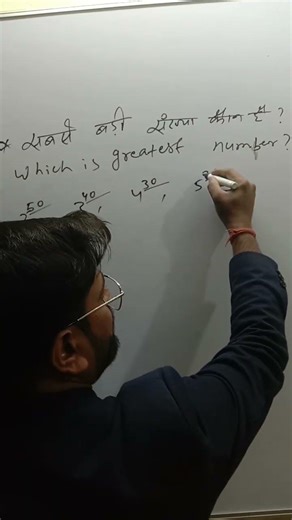 * सबसे बड़ी संख्या कौन है ?
which is greatest number?
2^50, 3^40, 4^30, 5